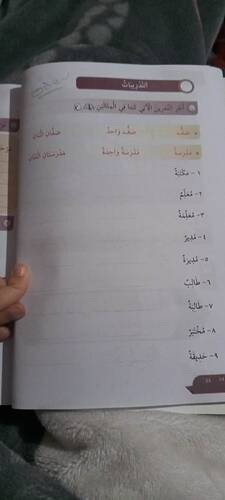 التدريبات
أجر التمرين الآتي كما في المثالين
صف صف واحد صفان اثنان
مدرسة مدرسة واحدة مدرستان اثنتان
١- مكتبة
٢- معلم
٣- معلمة
٤- مدير
٥- مديرة
٦- طالب
٧- طالبة
٨- مختبر
٩- حديقة